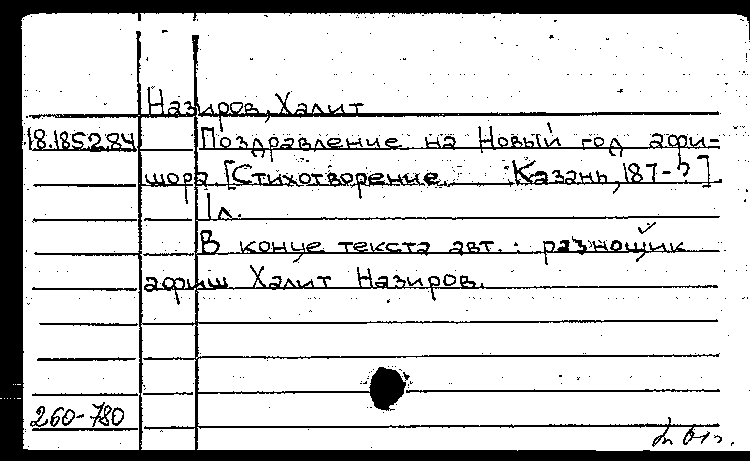 Назиров, Халит
18.185.2.84 Поздравление на Новый год афи-
шора. [Стихотворение. Казань, 187-?].
1 л.
В конце текста авт.: разносщик
афиш Халит Назиров.
260-780